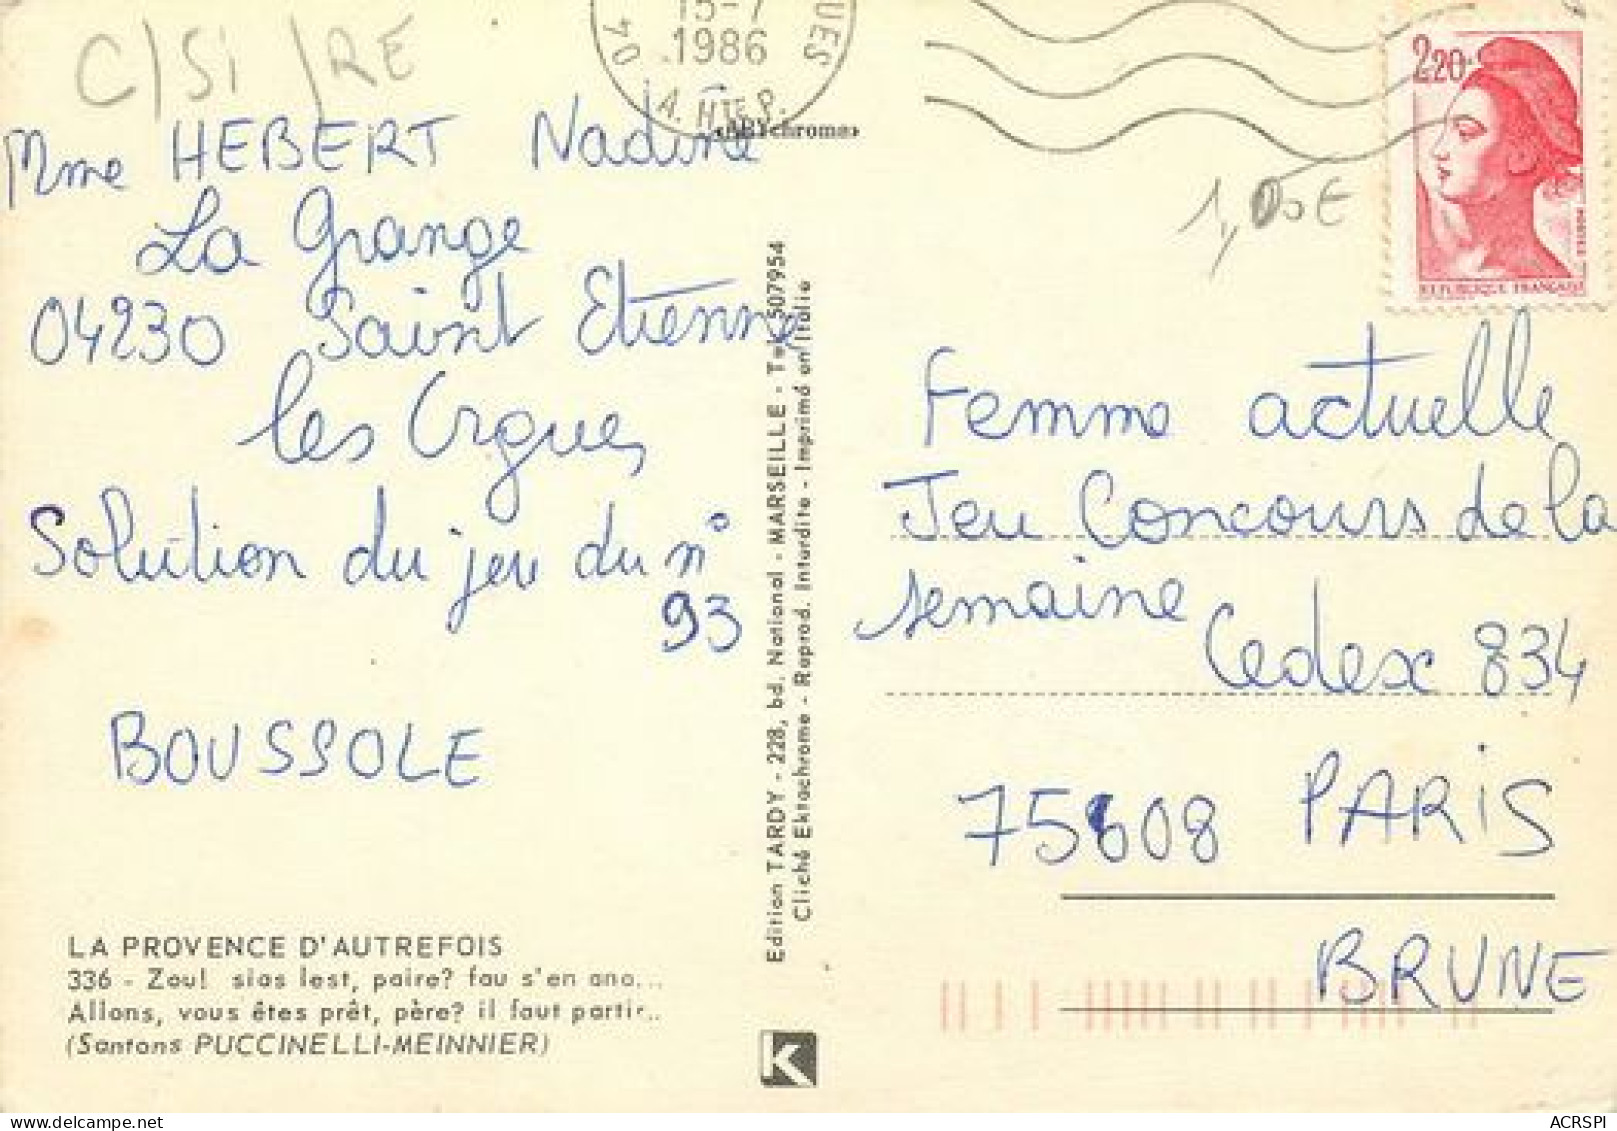 C/Si/RE
15-7
1986
04
A. HTE P.
2,20
REPUBLIQUE FRANÇAISE
1,00€
Mme HEBERT Nadine
La Grange
04230 Saint Etienne
les Orgues
Solution du jeu du n°
93
BOUSSOLE
LA PROVENCE D'AUTREFOIS
336 - Zou! sias lest, paire? fau s'en ana...
Allons, vous êtes prêt, père? il faut partir..
(Santons PUCCINELLI-MEINNIER)
Edition TARDY - 228, bd. National - MARSEILLE - Tel. 507954
Cliché Ektachrome - Reprod. Interdite - Imprimé en Italie
K
Femme actuelle
Jeu Concours de la
semaine
Cedex 834
75608 PARIS
BRUNE
delcampe.net
ACRSPI